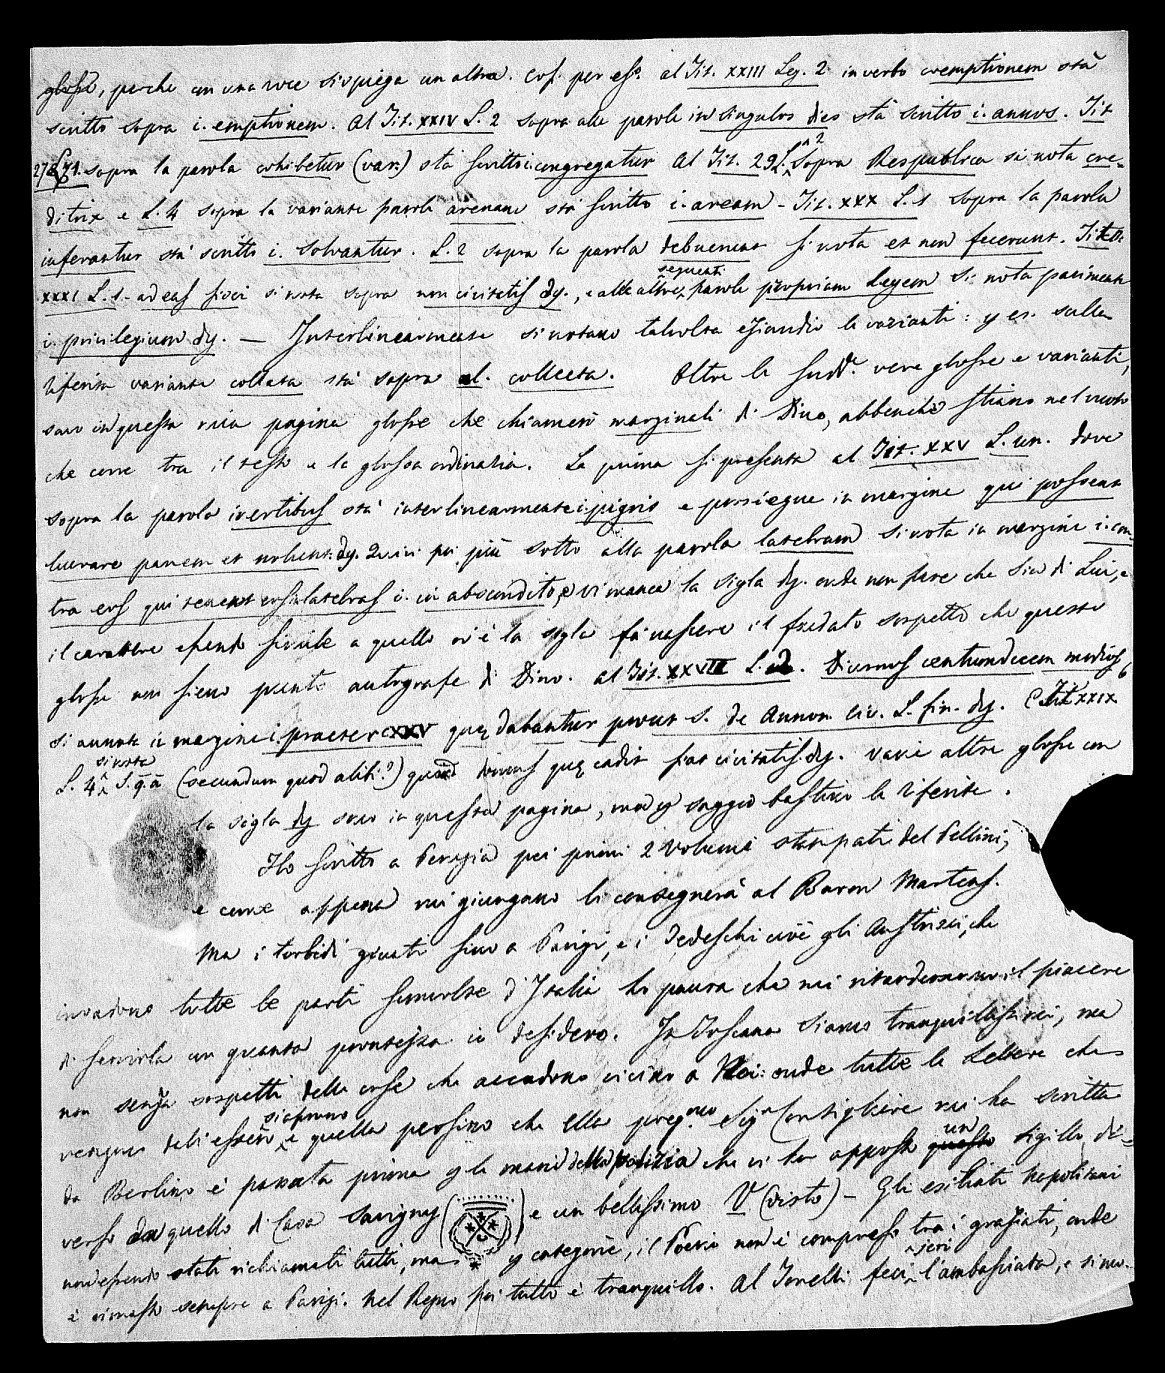 glosse, perche con una voce si spiega un altra. Così per es. al Tit. XXIII Leg. 2 in verbo coemptionem stà
scritto sopra i. emptionem. Al Tit. XXIV L. 2 sopra alle parole in singulos dies stà scritto i. annos. Tit
27 sopra la parola cohibetur (var.) stà scritto i. congregatur Al Tit. 29 L. 2 sopra Respublica si nota cre-
ditrix e L. 4 sopra la variante parola arenam stà scritto i. aream - Tit. XXX L. 1 sopra la parola
inferantur stà scritto i. solvantur. L. 2 sopra la parola debuerant si nota et non fecerunt. Tit
XXXI L. 1 ad eas fisci si nota sopra non civitatis dy., e alle altre seguenti parole propriam legem si nota parimente
i. privilegium dy. — Interlinearmente si notano talvolta eziandio le varianti: p es. sulla
riferita variante collata stà sopra al. collecta. Oltre le sudde. vere glosse e varianti,
sono in questa mia pagina glosse che chiamerò marginali di Dino, abbenchè stiano nel vuoto
che corre tra il testo e la glossa ordinaria. La prima si presenta al Tit. XXV L. un. dove
sopra la parola inertibus stà interlinearmente i. pigris e prosiegue in margine qui possent
lucrare panem et nolunt. dy. Quivi poi più sotto alla parola latebram si nota in margine i. con-
tra eos qui tenent eos in latebras i. in abscondito, e vi manca la sigla dy. onde non pare che sia di Lui, e
il carattere essendo simile a quello ov'è la sigla fà nascere il fredato sospetto che queste
glosse non sieno punto autografe di Dino. al Tit. XXVII L. 2. Diurnos centumdecem modios
si annota in margine i. praeter CXXV quę dabantur prout s. de Annon. civ. L. fin. dy. e Tit XXIX
L. 4 si nota S. q. ā (secundum quod alibi?) quod domus quę cadit fiat civitatis. dy. Varie altre glosse con
la sigla dy sono in questa pagina, ma p saggio bastino le riferite.
Ho scritto a Perugia pei primi 2 Volumi stampati del Pellini;
e come appena mi giungano li consegnerò al Baron Martens.
Ma i torbidi giunti sino a Parigi, e i Tedeschi cioè gli Austriaci, che
invadono tutte le parti sconvolte d'Italia ho paura che mi ritarderanno il piacere
di servirla con quanta prontezza io desidero. In Toscana siamo tranquillissimi, ma
non senza sospetti delle cose che accadono vicino a Noi: onde tutte le Lettere che
vengono dall'estero si aprono e quella persino che Ella pregmo Sigr Consigliere mi ha scritta
da Berlino è passata prima p le mani della polizia che vi ha apposto un sigillo, di-
verso da quello di Casa Savigny ( ) e un bellissimo V (visto) - Gli esiliati napolitani
non essendo stati richiamati tutti, ma p categorie, il Poerio non è compreso tra i graziati, onde
è rimasto sempre a Parigi. Nel Regno poi tutto è tranquillo. Al Tonelli feci jeri l'ambasciata, e si rac.